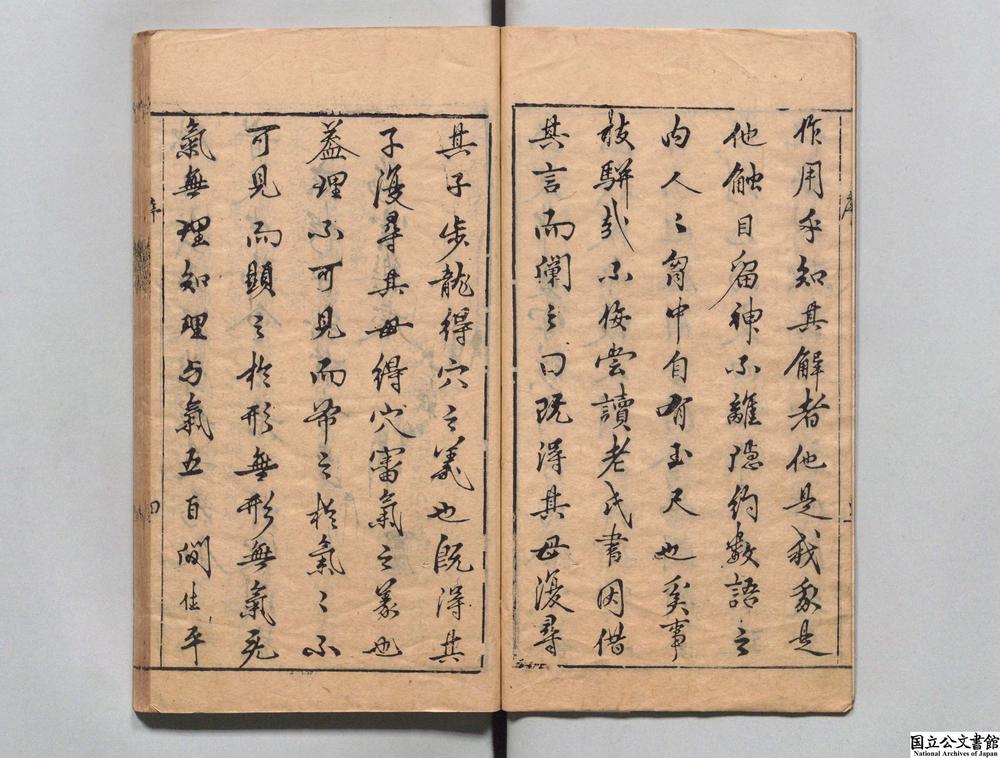 作用乎知其解者他是我象是
他触目留神不離隱約數語之
内人〻胷中自有玉尺也奚事
枝駢哉不佞嘗讀老氏書因借
其言而闡之曰既得其母復尋
其子步龍得穴之義也既得其
子復尋其母得穴審氣之義也
葢理不可見而寄之於氣〻不
可見而顯之於形無形無氣无
氣無理知理与氣五百間生平
序
序
四
国立公文書館
National Archives of Japan